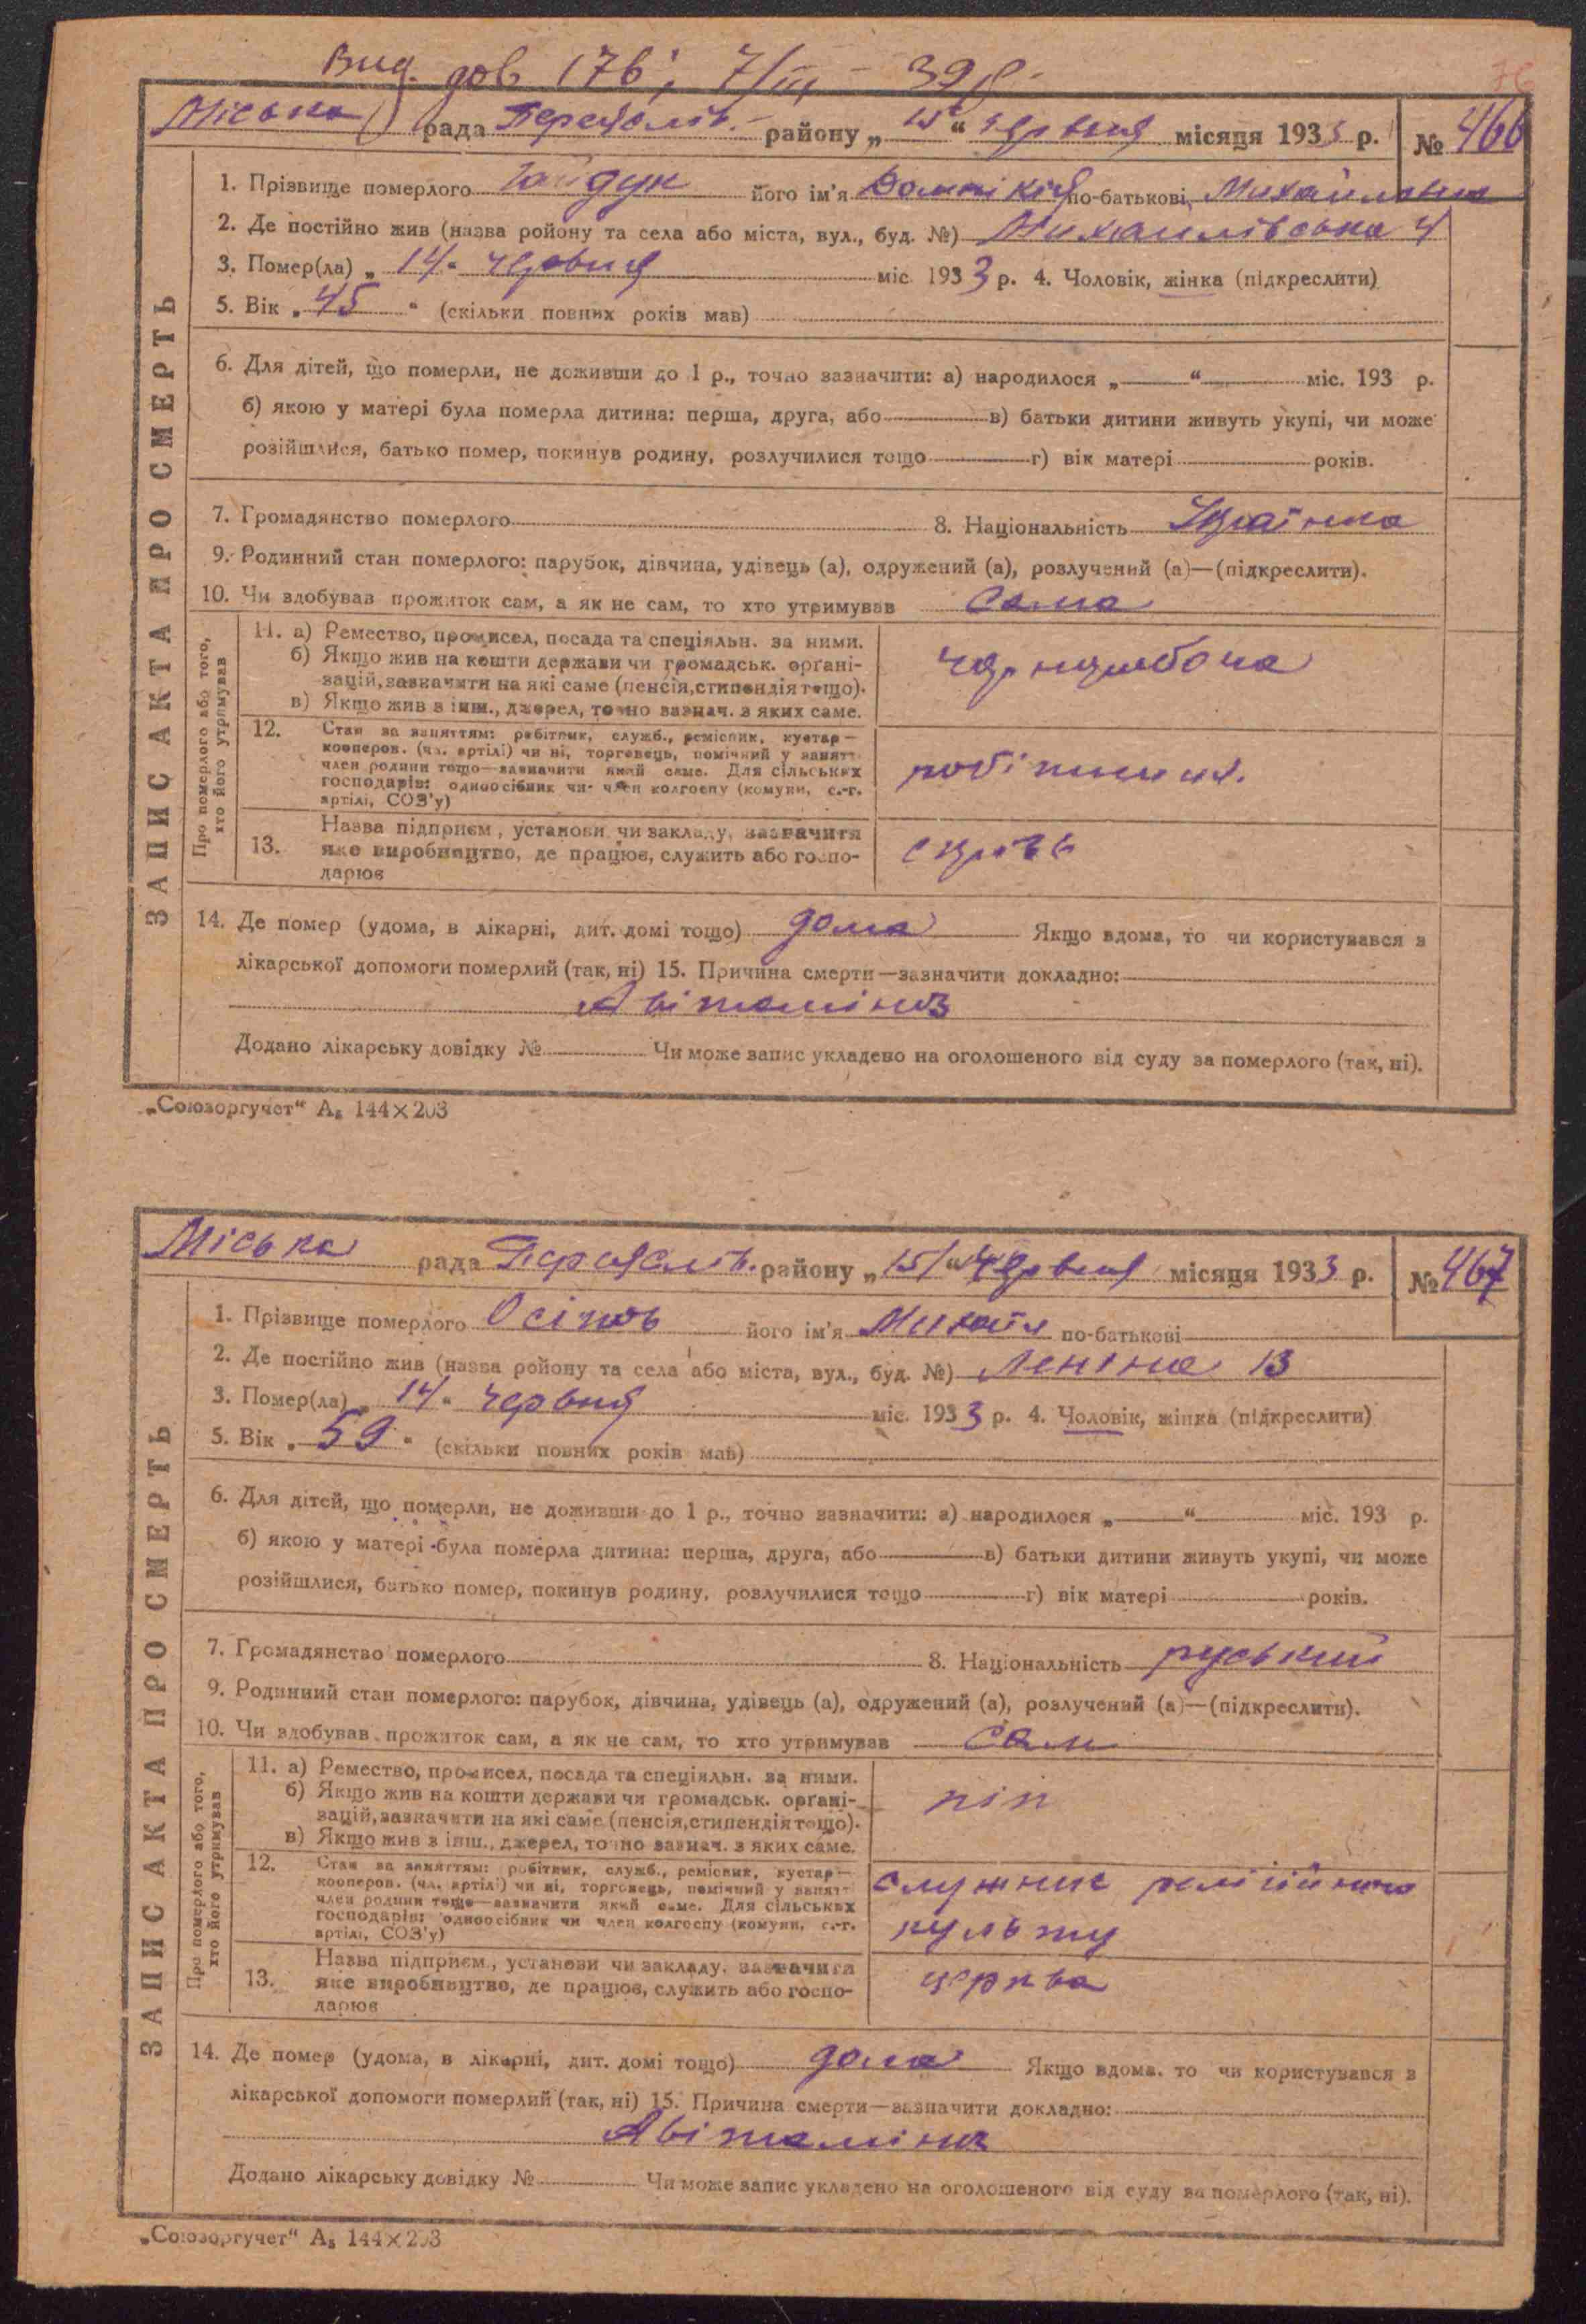 Вид. дов 176, 7/III - 39 р.
76
Міська рада Переяслів. району „15“ червня місяця 1933 р. № 466
1. Прізвище померлого Гайдук його ім'я Домнікія по-батькові Михайловна
2. Де постійно жив (назва ройону та села або міста, вул., буд. №) Михайлівська 4
3. Помер(ла) „14“ червня міс. 1933 р. 4. Чоловік, жінка (підкреслити)
5. Вік „45“ (скільки повних років мав)
6. Для дітей, що померли, не доживши до 1 р., точно зазначити: а) народилося „ “ міс. 193 р.
б) якою у матері була померла дитина: перша, друга, або в) батьки дитини живуть укупі, чи може
розійшлися, батько помер, покинув родину, розлучилися тощо г) вік матері років.
7. Громадянство померлого 8. Національність Українка
9. Родинний стан померлого: парубок, дівчина, удівець (а), одружений (а), розлучений (а)—(підкреслити).
10. Чи здобував прожиток сам, а як не сам, то хто утримував Сама
ЗАПИС АКТА ПРО СМЕРТЬ
Про померлого або того, хто його утримував
11. а) Ремество, промисел, посада та спеціяльн. за ними.
б) Якщо жив на кошти держави чи громадськ. органі-
зацій, зазначити на які саме (пенсія, стипендія тощо).
в) Якщо жив з інш., джерел, точно зазнач. з яких саме.
чорнороboча
12. Стан за заняттям: робітник, служб., ремісник, кустар—
кооперов. (чл. артілі) чи ні, торговець, помічний у занятт.
член родини тощо—зазначити який саме. Для сільських
господарів: одноосібник чи член колгоспу (комуни, с.-г.
артілі, СОЗ'у)
робітниця.
13. Назва підприєм., установи чи закладу, зазначити
яке виробництво, де працює, служить або госпо-
дарює
скрізь
14. Де помер (удома, в лікарні, дит. домі тощо) дома Якщо вдома, то чи користувався з
лікарської допомоги померлий (так, ні) 15. Причина смерти—зазначити докладно:
Авітаміноз
Додано лікарську довідку № Чи може запис укладено на оголошеного від суду за померлого (так, ні).
„Союзоргучет“ А₅ 144×203
Міська рада Переяслів. району „15“ червня місяця 1933 р. № 467
1. Прізвище померлого Осіпов його ім'я Микола по-батькові
2. Де постійно жив (назва ройону та села або міста, вул., буд. №) Леніна 13
3. Помер(ла) „14“ червня міс. 1933 р. 4. Чоловік, жінка (підкреслити)
5. Вік „59“ (скільки повних років мав)
6. Для дітей, що померли, не доживши до 1 р., точно зазначити: а) народилося „ “ міс. 193 р.
б) якою у матері була померла дитина: перша, друга, або в) батьки дитини живуть укупі, чи може
розійшлися, батько помер, покинув родину, розлучилися тощо г) вік матері років.
7. Громадянство померлого 8. Національність руський
9. Родинний стан померлого: парубок, дівчина, удівець (а), одружений (а), розлучений (а)—(підкреслити).
10. Чи здобував прожиток сам, а як не сам, то хто утримував Сам
ЗАПИС АКТА ПРО СМЕРТЬ
Про померлого або того, хто його утримував
11. а) Ремество, промисел, посада та спеціяльн. за ними.
б) Якщо жив на кошти держави чи громадськ. органі-
зацій, зазначити на які саме (пенсія, стипендія тощо).
в) Якщо жив з інш., джерел, точно зазнач. з яких саме.
піп
12. Стан за заняттям: робітник, служб., ремісник, кустар—
кооперов. (чл. артілі) чи ні, торговець, помічний у занятт.
член родини тощо—зазначити який саме. Для сільських
господарів: одноосібник чи член колгоспу (комуни, с.-г.
артілі, СОЗ'у)
служник релігійного
культу
13. Назва підприєм., установи чи закладу, зазначити
яке виробництво, де працює, служить або госпо-
дарює
церква
14. Де помер (удома, в лікарні, дит. домі тощо) дома Якщо вдома, то чи користувався з
лікарської допомоги померлий (так, ні) 15. Причина смерти—зазначити докладно:
Авітаміноз
Додано лікарську довідку № Чи може запис укладено на оголошеного від суду за померлого (так, ні).
„Союзоргучет“ А₅ 144×203